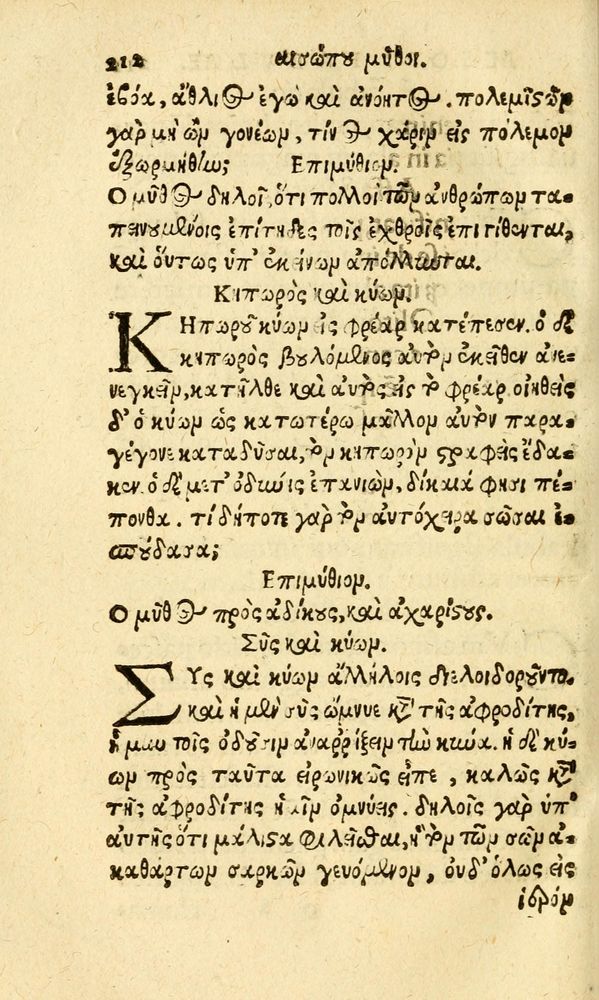 212 αισώπου μῦθοι.
ἐβόα, ἄθλιος ἐγὼ καὶ ἀνόητος. πολεμιστῶν
γὰρ μὴ ὢν γονέων, τίνος χάριν εἰς πόλεμον
ἐξωρμήθην; Επιμύθιον.
Ο μῦθος δηλοῖ, ὅτι πολλοὶ τῶν ἀνθρώπων τα-
πεινουμένοις ἐπίτηδες τοῖς ἐχθροῖς ἐπιτίθενται,
καὶ οὕτως ὑπ' ἐκείνων ἀπόλλυνται.
Κηπωρὸς καὶ κύων.
ΚΗπωροῦ κύων εἰς φρέαρ κατέπεσεν. ὁ δὲ
κηπωρὸς βουλόμενος αὐτὸν ἐκεῖθεν ἀνε-
νεγκεῖν, κατῆλθε καὶ αὐτὸς εἰς τὸ φρέαρ. οἰηθεὶς
δ' ὁ κύων ὡς κατωτέρω μᾶλλον αὐτὸν παρα-
γέγονε καταδῦσαι, τὸν κηπωρὸν στραφεὶς ἔδα-
κεν. ὁ δὲ μετ' ὀδύνης ἐπανιὼν, δίκαιά φησι πέ-
πονθα. τί δήποτε γὰρ τὸν αὐτόχειρα σῶσαι ἐ-
σπούδασα;
Επιμύθιον.
Ο μῦθος πρὸς ἀδίκους, καὶ ἀχαρίστους.
Σῦς καὶ κύων.
ΣΥς καὶ κύων ἀλλήλοις διελοιδοροῦντο.
καὶ ἡ μὲν σῦς ὤμνυε κατὰ τῆς ἀφροδίτης,
ἦ μὴν τοῖς ὀδοῦσιν ἀναρρήξειν τὴν κύνα. ἡ δὲ κύ-
ων πρὸς ταῦτα εἰρωνικῶς εἶπε, καλῶς κατὰ
τῆς ἀφροδίτης ἡμῖν ὀμνύεις. δηλοῖς γὰρ ὑπ'
αὐτῆς ὅτι μάλιστα φιλεῖσθαι, ἣ τὸν τῶν σῶν ἀ-
καθάρτων σαρκῶν γευόμενον, οὐδ' ὅλως εἰς
ἱερὸν